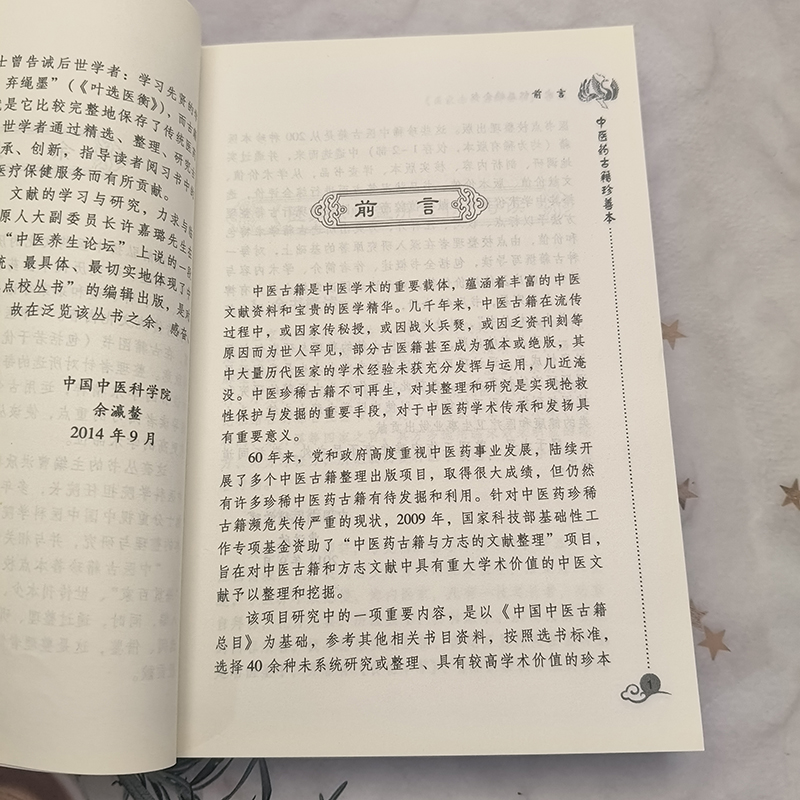 士曾告诫后世学者：学习先贤的
弃绳墨”（《叶选医衡》），而古
就是它比较完整地保存了传统医
世学者通过精选、整理、研究
承、创新，指导读者阅习书中
医疗保健服务而有所贡献。
文献的学习与研究，力求与
原人大副委员长许嘉璐先生
“中医养生论坛”上说的一段
统、最具体、最切实地体现了中
点校丛书”的编辑出版，是
故在泛览该丛书之余，感奋
中国中医科学院
余瀛鳌
2014年9月
前 言
中医药古籍珍善本
前 言
中医古籍是中医学术的重要载体，蕴涵着丰富的中医
文献资料和宝贵的医学精华。几千年来，中医古籍在流传
过程中，或因家传秘授，或因战火兵燹，或因乏资刊刻等
原因而为世人罕见，部分古医籍甚至成为孤本或绝版，其
中大量历代医家的学术经验未获充分发挥与运用，几近淹
没。中医珍稀古籍不可再生，对其整理和研究是实现抢救
性保护与发掘的重要手段，对于中医药学术传承和发扬具
有重要意义。
60年来，党和政府高度重视中医药事业发展，陆续开
展了多个中医古籍整理出版项目，取得很大成绩，但仍然
有许多珍稀中医药古籍有待发掘和利用。针对中医药珍稀
古籍濒危失传严重的现状，2009年，国家科技部基础性工
作专项基金资助了“中医药古籍与方志的文献整理”项目，
旨在对中医古籍和方志文献中具有重大学术价值的中医文
献予以整理和挖掘。
该项目研究中的一项重要内容，是以《中国中医古籍
总目》为基础，参考其他相关书目资料，按照选书标准，
选择40余种未系统研究或整理、具有较高学术价值的珍本
1